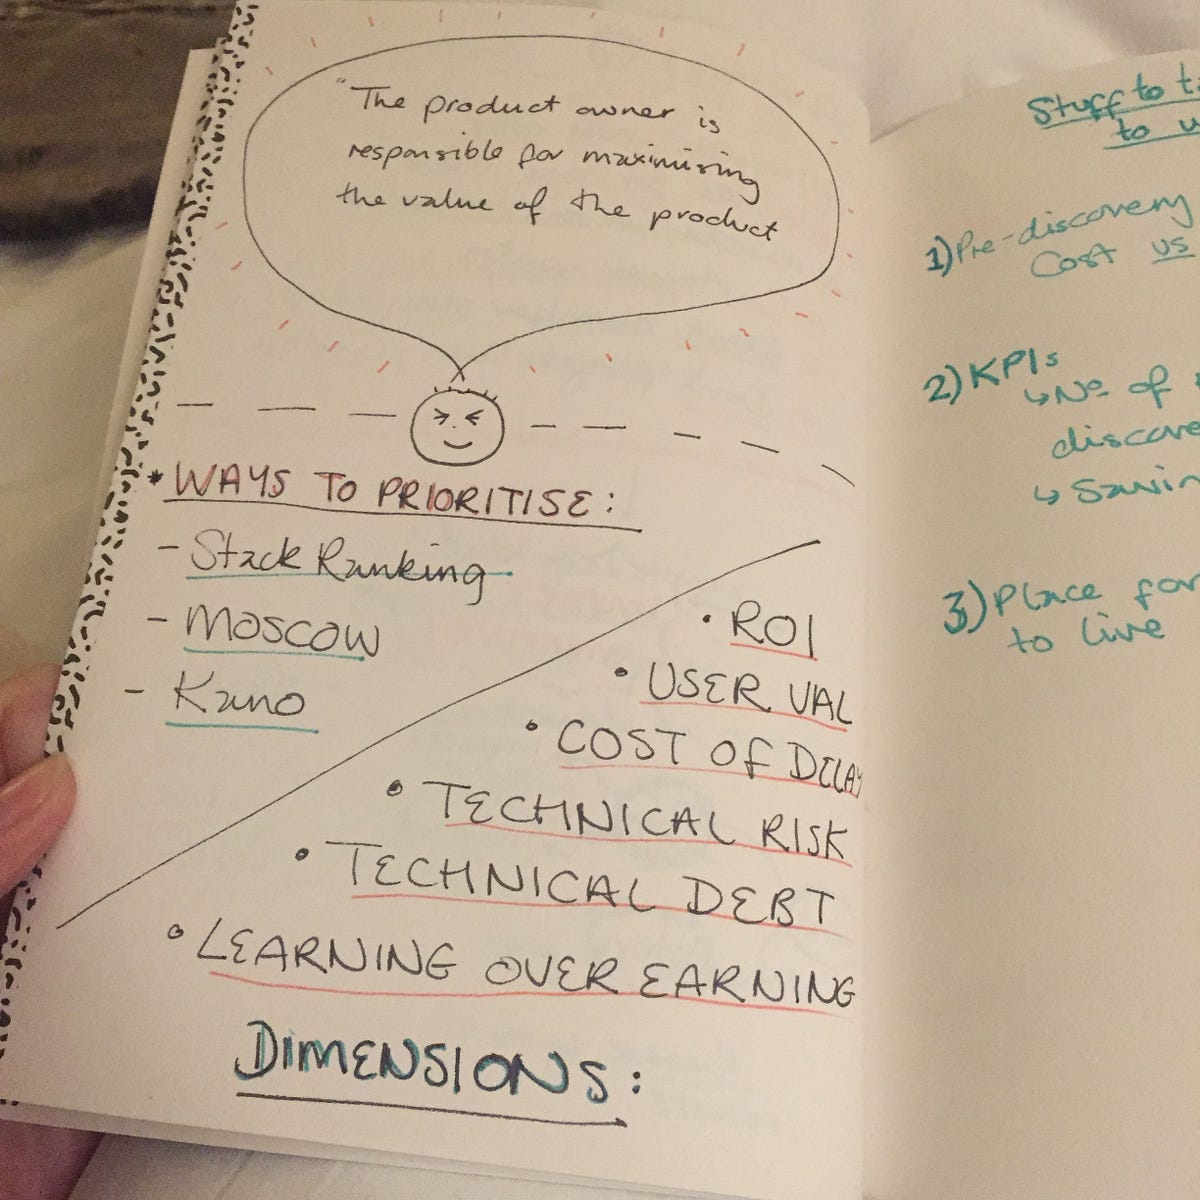 "The product owner is
responsible for maximising
the value of the product
* WAYS TO PRIORITISE:
- Stack Ranking
- MOSCOW
- Kano
• ROI
• USER VAL
• COST OF DELAY
• TECHNICAL RISK
• TECHNICAL DEBT
• LEARNING OVER EARNING
DIMENSIONS:
Stuff to
to
1) Pre-discovery
Cost us
2) KPIs
↳ No of
↳
3) Place for
to live